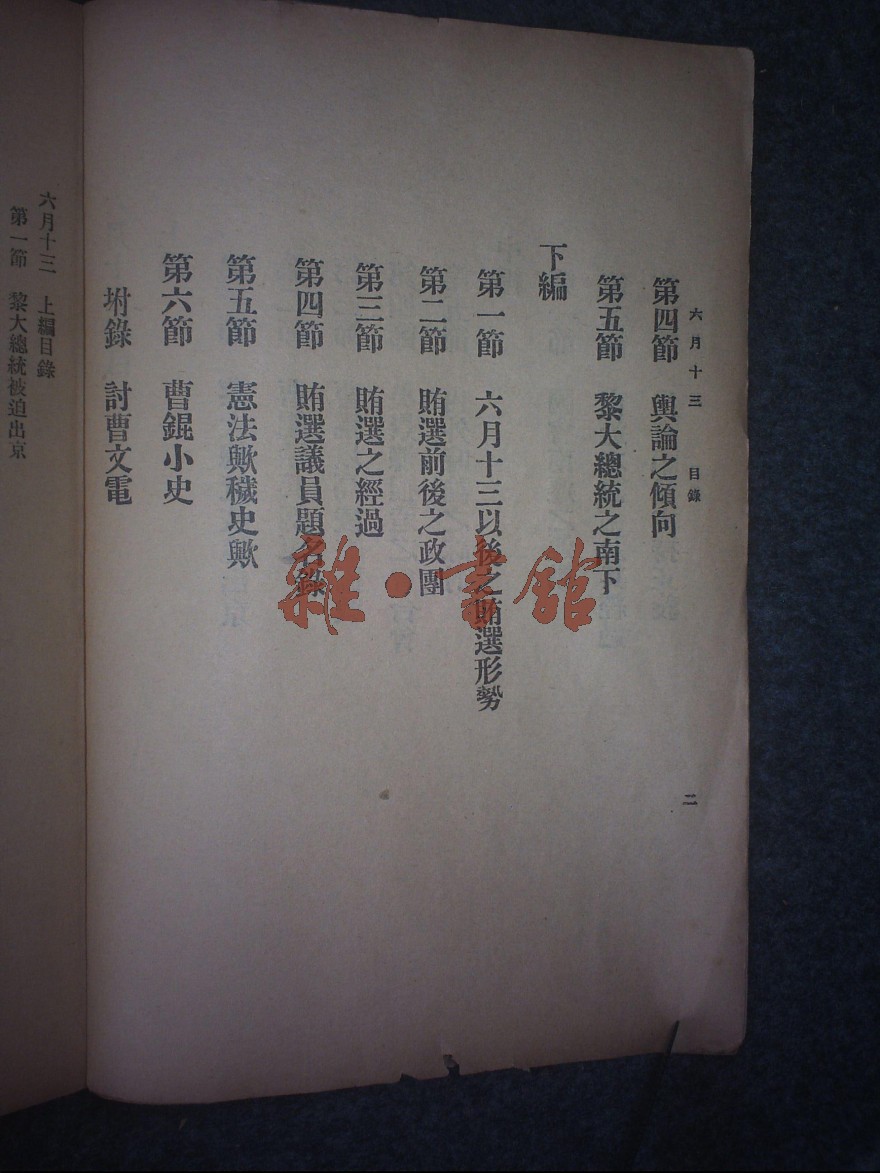 六月十三 目錄
二
第四節 輿論之傾向
第五節 黎大總統之南下
下編
第一節 六月十三以後之賄選形勢
第二節 賄選前後之政團
第三節 賄選之經過
第四節 賄選議員題名錄
第五節 憲法歟穢史歟
第六節 曹錕小史
坿錄 討曹文電
六月十三 上編目錄
第一節 黎大總統被迫出京
雜·書館